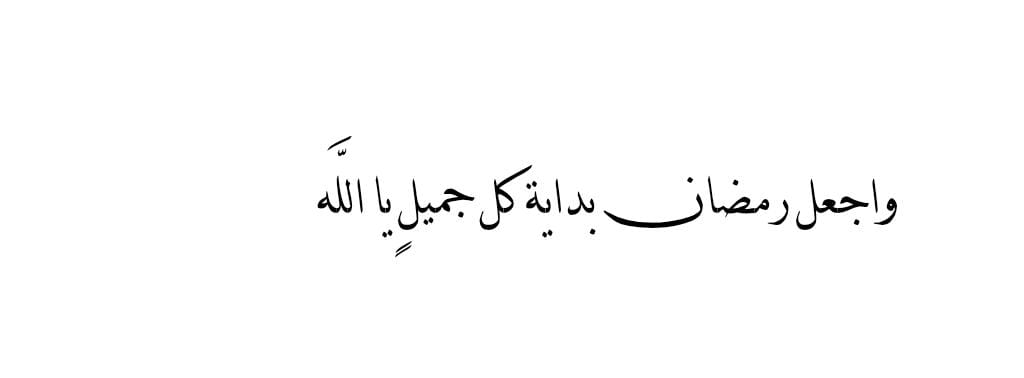 واجعل رمضان بداية كل جميلٍ يا اللَّه